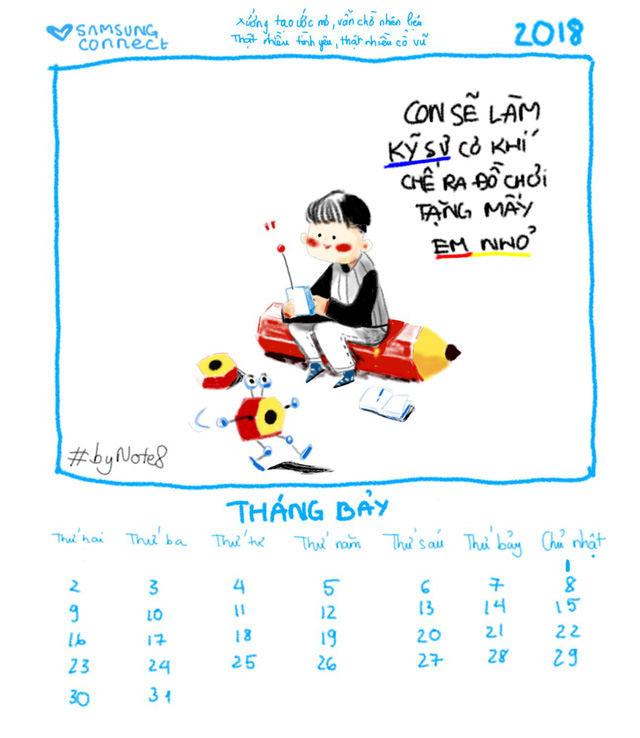 SAMSUNG
connect
Xưởng tạo ước mơ, vẫn chờ nhiên liệu
Thật nhiều tình yêu, thật nhiều cổ vũ
2018
CON SẼ LÀM
KỸ SƯ CƠ KHÍ
CHẾ RA ĐỒ CHƠI
TẶNG MẤY
EM NHỎ
#byNote8
THÁNG BẢY
Thứ hai Thứ ba Thứ tư Thứ năm Thứ sáu Thứ bảy Chủ nhật
1
2 3 4 5 6 7 8
9 10 11 12 13 14 15
16 17 18 19 20 21 22
23 24 25 26 27 28 29
30 31